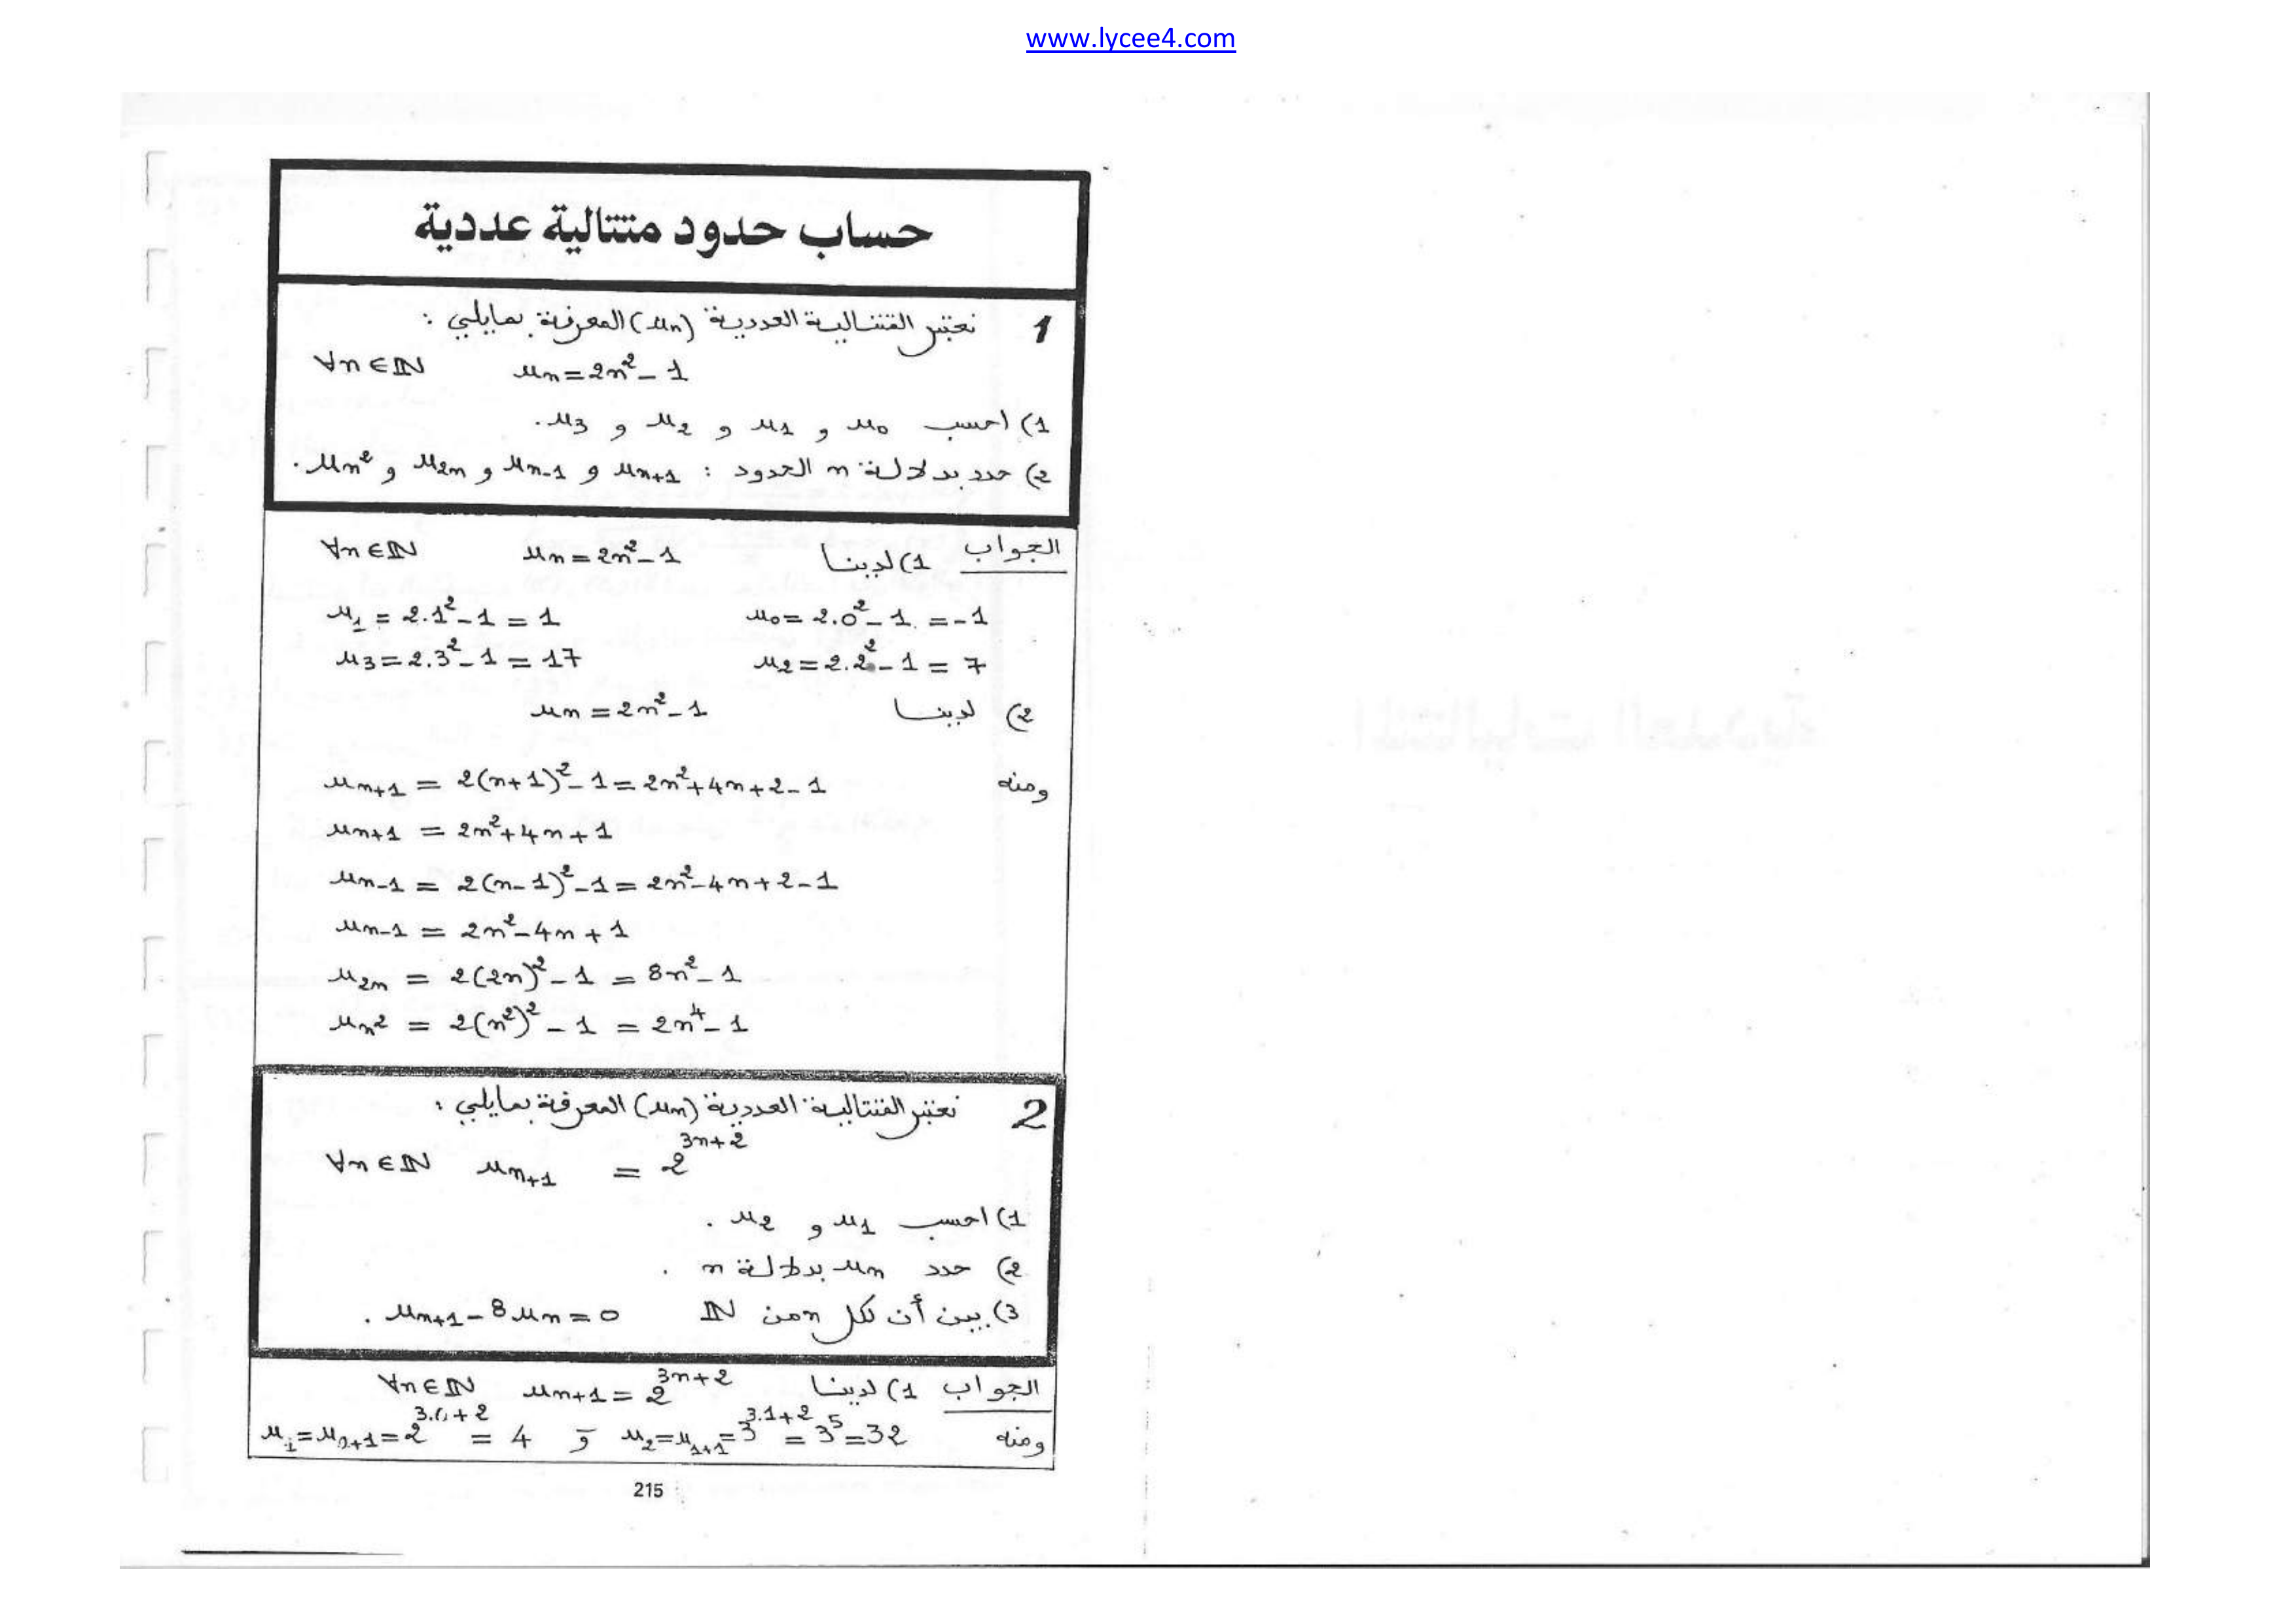 www.lycee4.com
حساب حدود متتالية عددية
1 نعتبر المتتالية العددية (uₙ) المعرفة بمايلي :
uₙ = 2n² - 1 ∀n ∈ ℕ
1) احسب u₀ و u₁ و u₂ و u₃.
2) حدد بدلالة n الحدود : uₙ₊₁ و uₙ₋₁ و u₂ₙ و uₙ².
الجواب 1) لدينا uₙ = 2n² - 1 ∀n ∈ ℕ
u₀ = 2.0² - 1 = -1 u₁ = 2.1² - 1 = 1
u₂ = 2.2² - 1 = 7 u₃ = 2.3² - 1 = 17
2) لدينا uₙ = 2n² - 1
ومنه uₙ₊₁ = 2(n+1)² - 1 = 2n² + 4n + 2 - 1
uₙ₊₁ = 2n² + 4n + 1
uₙ₋₁ = 2(n-1)² - 1 = 2n² - 4n + 2 - 1
uₙ₋₁ = 2n² - 4n + 1
u₂ₙ = 2(2n)² - 1 = 8n² - 1
uₙ² = 2(n²)² - 1 = 2n⁴ - 1
2 نعتبر المتتالية العددية (uₙ) المعرفة بمايلي :
∀n ∈ ℕ uₙ₊₁ = 2³ⁿ⁺²
1) احسب u₁ و u₂ .
2) حدد uₙ بدلالة n .
3) بين أن لكل n من ℕ uₙ₊₁ - 8uₙ = 0 .
الجواب 1) لدينا uₙ₊₁ = 2³ⁿ⁺² ∀n ∈ ℕ
ومنه u₁ = u₀₊₁ = 2^(3.0+2) = 4 و u₂ = u₁₊₁ = 3^(3.1+2) = 3⁵ = 32
215